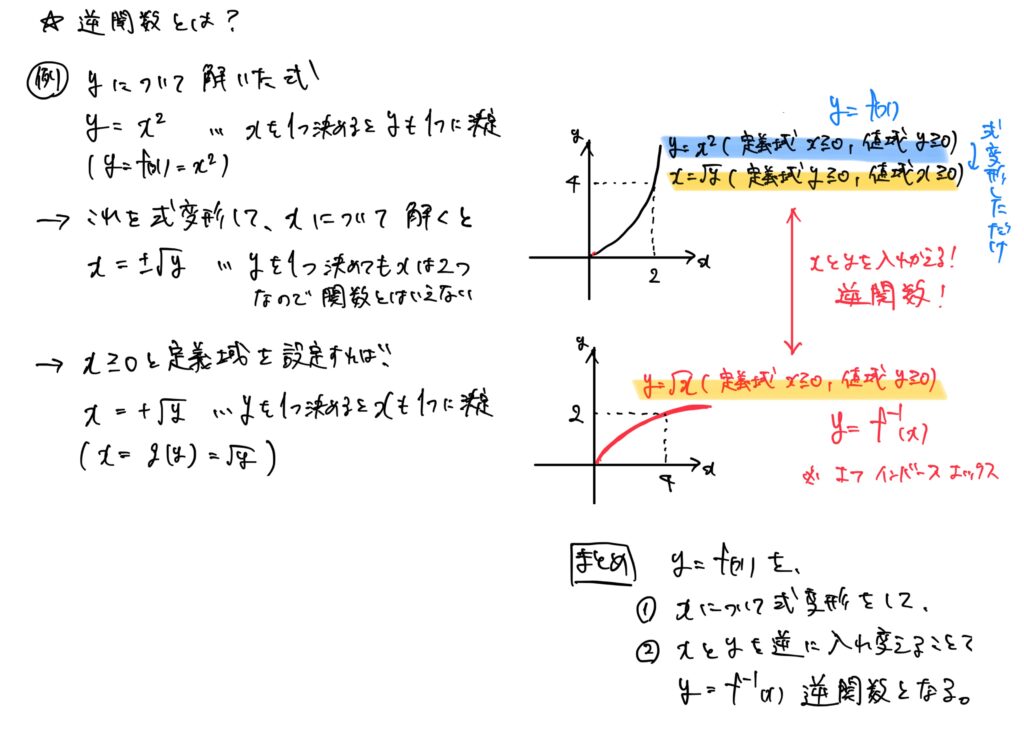 ☆ 逆関数とは?
例 yについて解いた式
y = x² … xを1つ決めるとyも1つに決定
(y = f(x) = x²)
→ これを式変形して、xについて解くと
x = ±√y … yを1つ決めてもxは2つ
なので関数とはいえない
→ x≧0と定義域を設定すれば、
x = +√y … yを1つ決めるとxも1つに決定
(x = g(y) = √y)
y = f(x)
y = x² (定義域 x≧0, 値域 y≧0)
x = √y (定義域 y≧0, 値域 x≧0)
式変形しただけ
y
4
2
x
xとyを入れかえる!
逆関数!
y = √x (定義域 x≧0, 値域 y≧0)
y = f⁻¹(x)
※ エフ インバース エックス
y
2
4
x
まとめ y = f(x) を、
① xについて式変形をして、
② xとyを逆に入れ変えることで
y = f⁻¹(x) 逆関数となる。